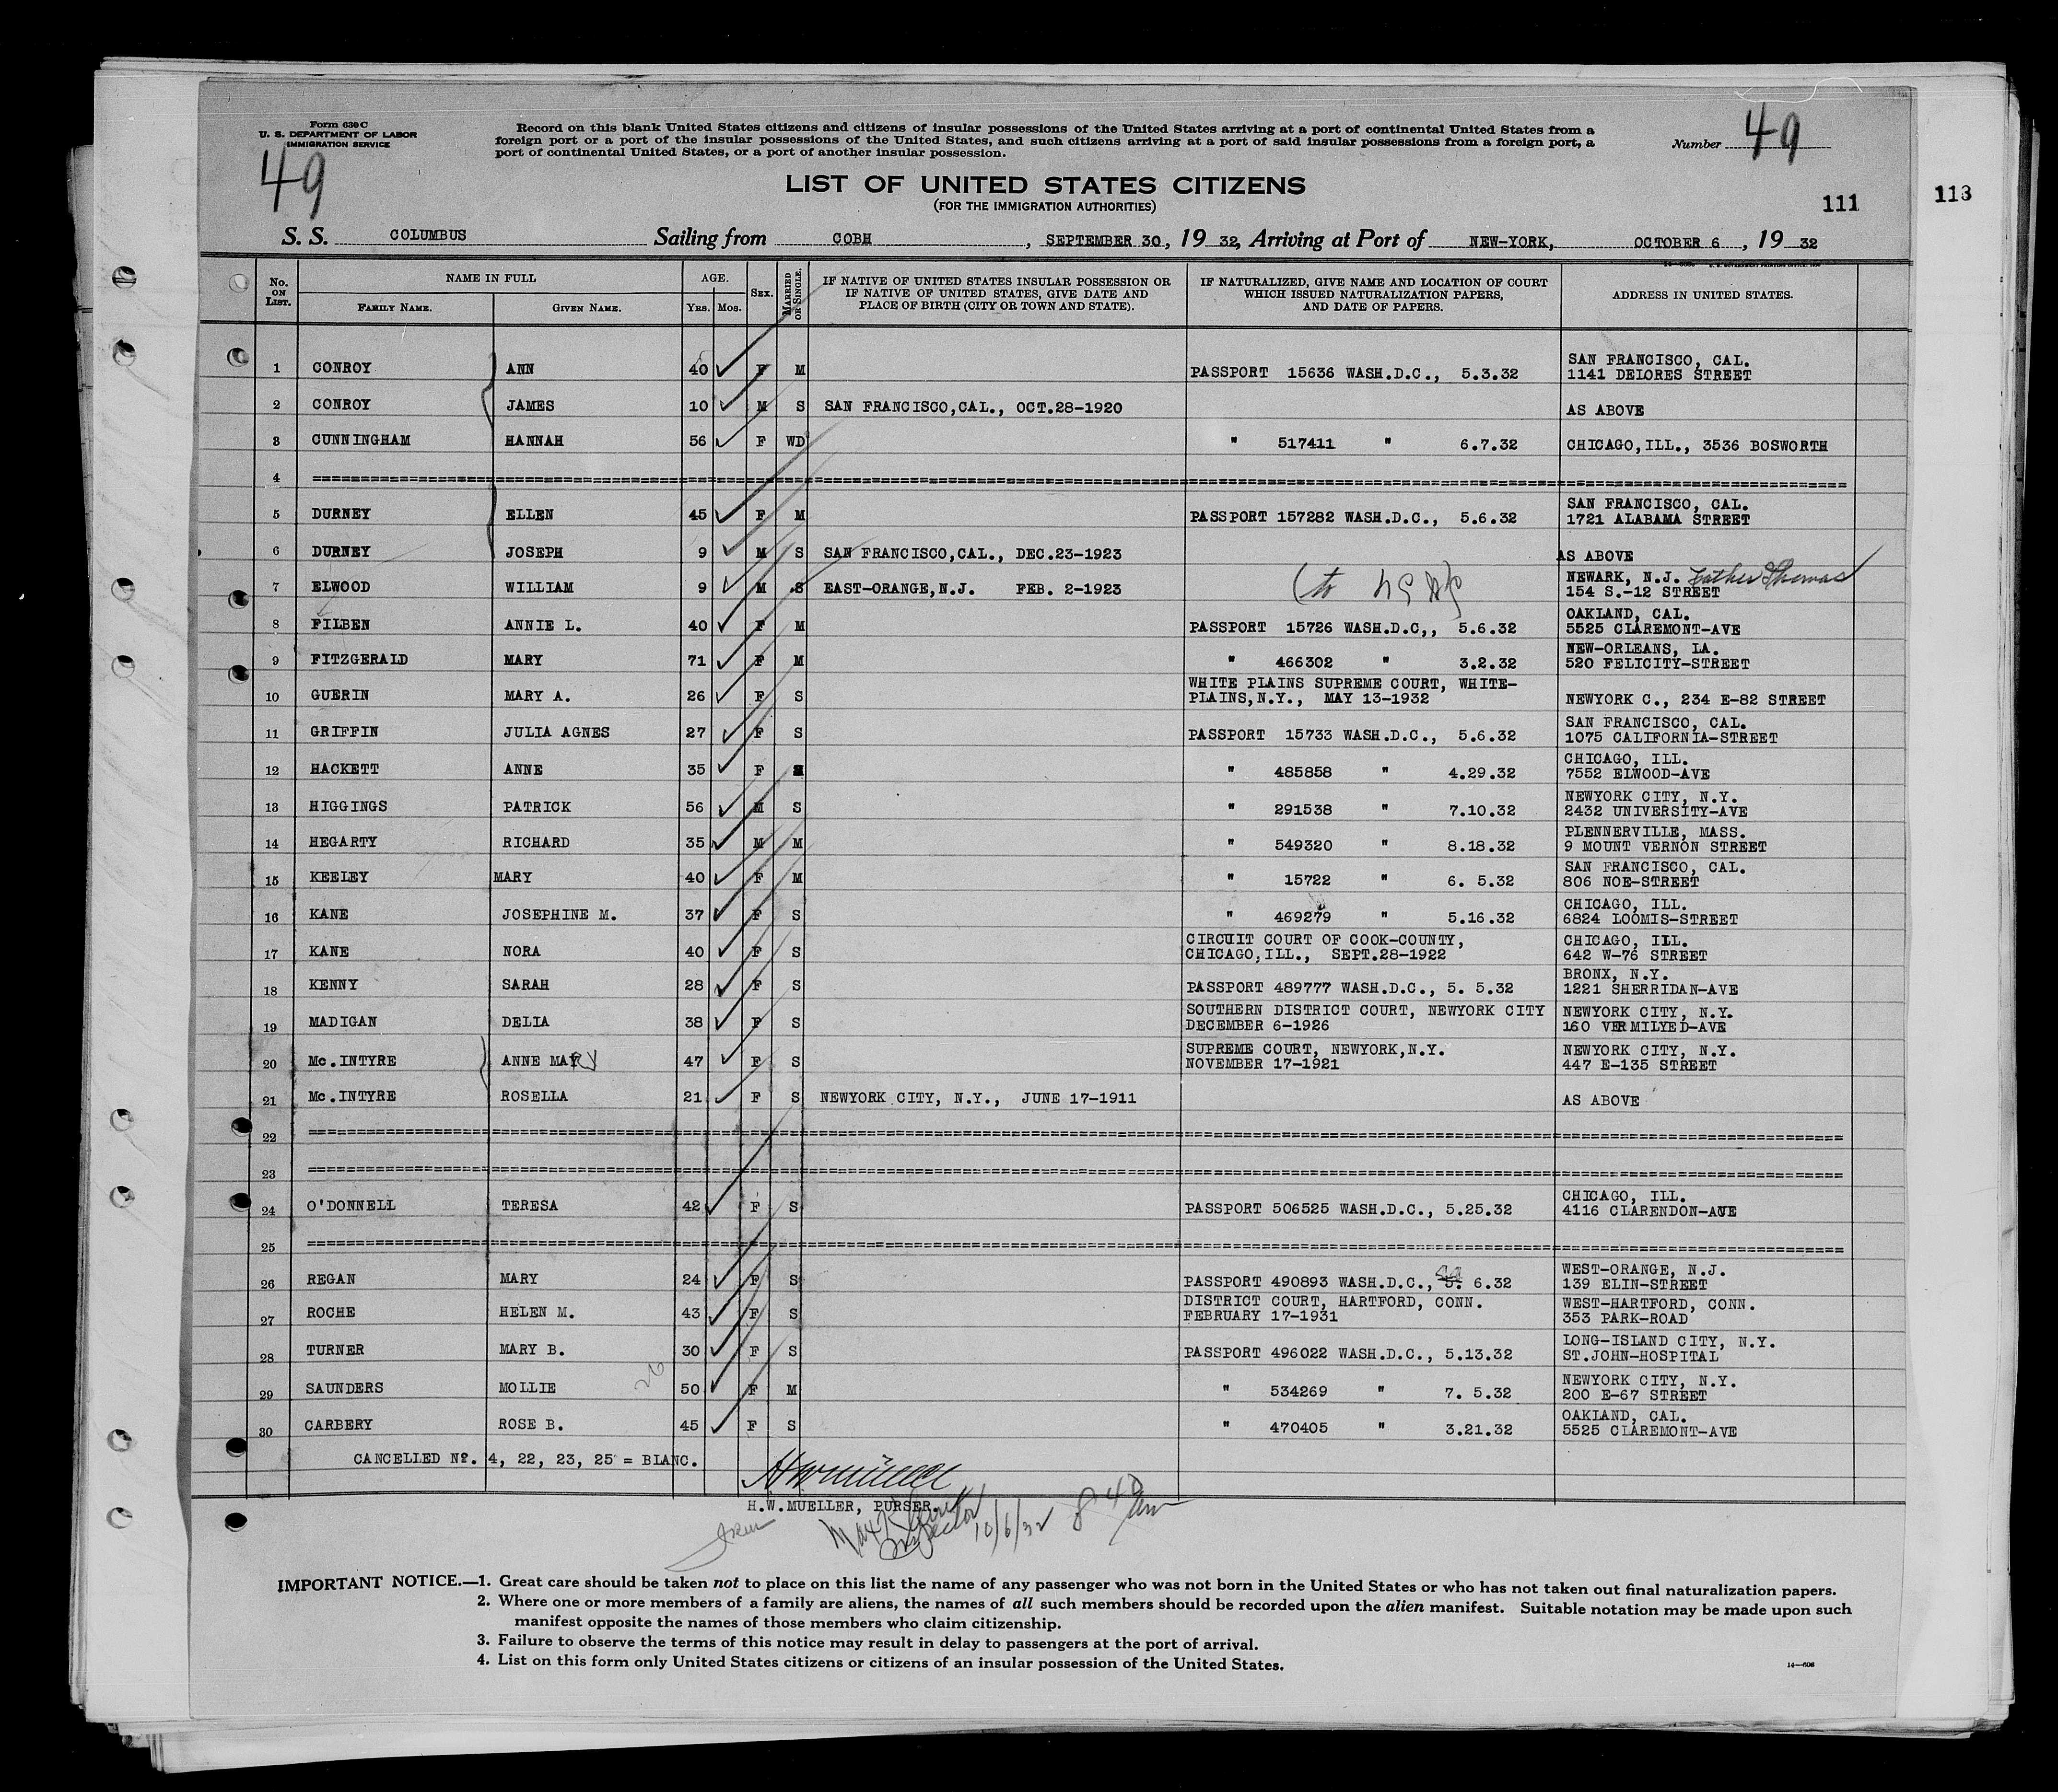 Form 630 C
U. S. DEPARTMENT OF LABOR
IMMIGRATION SERVICE
49
Record on this blank United States citizens and citizens of insular possessions of the United States arriving at a port of continental United States from a
foreign port or a port of the insular possessions of the United States, and such citizens arriving at a port of said insular possessions from a foreign port, a
port of continental United States, or a port of another insular possession.
Number 49
LIST OF UNITED STATES CITIZENS
(FOR THE IMMIGRATION AUTHORITIES)
111
113
S. S. COLUMBUS Sailing from COBH, SEPTEMBER 30, 19 32, Arriving at Port of NEW-YORK, OCTOBER 6, 19 32
No. ON LIST. NAME IN FULL FAMILY NAME. GIVEN NAME. AGE. Yrs. Mos. SEX. MARRIED OR SINGLE. IF NATIVE OF UNITED STATES INSULAR POSSESSION OR IF NATIVE OF UNITED STATES, GIVE DATE AND PLACE OF BIRTH (CITY OR TOWN AND STATE). IF NATURALIZED, GIVE NAME AND LOCATION OF COURT WHICH ISSUED NATURALIZATION PAPERS, AND DATE OF PAPERS. ADDRESS IN UNITED STATES.
1 CONROY ANN 40 F M PASSPORT 15636 WASH.D.C., 5.3.32 SAN FRANCISCO, CAL. 1141 DELORES STREET
2 CONROY JAMES 10 M S SAN FRANCISCO,CAL., OCT.28-1920 AS ABOVE
3 CUNNINGHAM HANNAH 56 F WD " 517411 " 6.7.32 CHICAGO,ILL., 3536 BOSWORTH
4
5 DURNEY ELLEN 45 F M PASSPORT 157282 WASH.D.C., 5.6.32 SAN FRANCISCO, CAL. 1721 ALABAMA STREET
6 DURNEY JOSEPH 9 M S SAN FRANCISCO,CAL., DEC.23-1923 AS ABOVE
7 ELWOOD WILLIAM 9 M S EAST-ORANGE,N.J. FEB. 2-1923 NEWARK, N.J. Father Thomas 154 S.-12 STREET
8 FILBEN ANNIE L. 40 F M PASSPORT 15726 WASH.D.C,, 5.6.32 OAKLAND, CAL. 5525 CLAREMONT-AVE
9 FITZGERALD MARY 71 F M " 466302 " 3.2.32 NEW-ORLEANS, LA. 520 FELICITY-STREET
10 GUERIN MARY A. 26 F S WHITE PLAINS SUPREME COURT, WHITE-PLAINS,N.Y., MAY 13-1932 NEWYORK C., 234 E-82 STREET
11 GRIFFIN JULIA AGNES 27 F S PASSPORT 15733 WASH.D.C., 5.6.32 SAN FRANCISCO, CAL. 1075 CALIFORNIA-STREET
12 HACKETT ANNE 35 F " 485858 " 4.29.32 CHICAGO, ILL. 7552 ELWOOD-AVE
13 HIGGINGS PATRICK 56 M S " 291538 " 7.10.32 NEWYORK CITY, N.Y. 2432 UNIVERSITY-AVE
14 HEGARTY RICHARD 35 M M " 549320 " 8.18.32 PLENNERVILLE, MASS. 9 MOUNT VERNON STREET
15 KEELEY MARY 40 F M " 15722 " 6. 5.32 SAN FRANCISCO, CAL. 806 NOE-STREET
16 KANE JOSEPHINE M. 37 F S " 469279 " 5.16.32 CHICAGO, ILL. 6824 LOOMIS-STREET
17 KANE NORA 40 F S CIRCUIT COURT OF COOK-COUNTY, CHICAGO,ILL., SEPT.28-1922 CHICAGO, ILL. 642 W-76 STREET
18 KENNY SARAH 28 F S PASSPORT 489777 WASH.D.C., 5. 5.32 BRONX, N.Y. 1221 SHERRIDAN-AVE
19 MADIGAN DELIA 38 F S SOUTHERN DISTRICT COURT, NEWYORK CITY DECEMBER 6-1926 NEWYORK CITY, N.Y. 160 VERMILYED-AVE
20 Mc.INTYRE ANNE MARY 47 F S SUPREME COURT, NEWYORK,N.Y. NOVEMBER 17-1921 NEWYORK CITY, N.Y. 447 E-135 STREET
21 Mc.INTYRE ROSELLA 21 F S NEWYORK CITY, N.Y., JUNE 17-1911 AS ABOVE
22
23
24 O'DONNELL TERESA 42 F S PASSPORT 506525 WASH.D.C., 5.25.32 CHICAGO, ILL. 4116 CLARENDON-AVE
25
26 REGAN MARY 24 F S PASSPORT 490893 WASH.D.C., 5. 6.32 WEST-ORANGE, N.J. 139 ELIN-STREET
27 ROCHE HELEN M. 43 F S DISTRICT COURT, HARTFORD, CONN. FEBRUARY 17-1931 WEST-HARTFORD, CONN. 353 PARK-ROAD
28 TURNER MARY B. 30 F S PASSPORT 496022 WASH.D.C., 5.13.32 LONG-ISLAND CITY, N.Y. ST.JOHN-HOSPITAL
29 SAUNDERS MOLLIE 26 50 F M " 534269 " 7. 5.32 NEWYORK CITY, N.Y. 200 E-67 STREET
30 CARBERY ROSE B. 45 F S " 470405 " 3.21.32 OAKLAND, CAL. 5525 CLAREMONT-AVE
CANCELLED Nº. 4, 22, 23, 25 = BLANC.
H.W.MUELLER, PURSER.
Inspector 10/6/32 8 40 am
IMPORTANT NOTICE.—1. Great care should be taken not to place on this list the name of any passenger who was not born in the United States or who has not taken out final naturalization papers.
2. Where one or more members of a family are aliens, the names of all such members should be recorded upon the alien manifest. Suitable notation may be made upon such
manifest opposite the names of those members who claim citizenship.
3. Failure to observe the terms of this notice may result in delay to passengers at the port of arrival.
4. List on this form only United States citizens or citizens of an insular possession of the United States.
14—608